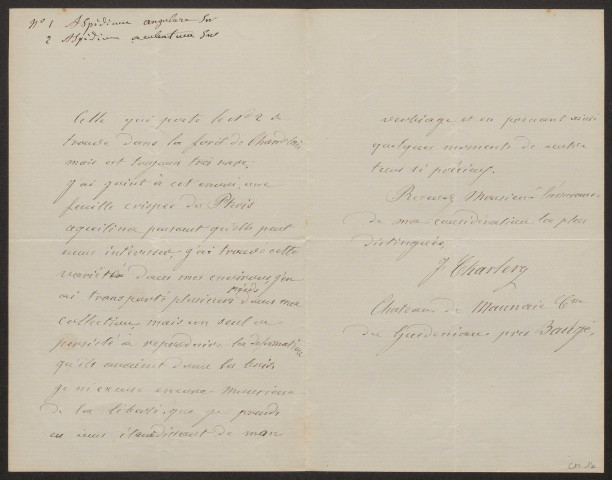 No 1 Aspidium angulare Sw
2 Aspidium aculeatum Sw
Celle qui porte le No 2 se
trouve dans la forêt de Chandelais
mais est toujours très rare.
J'ai joint à cet envoi une
feuille crispée du Pteris
aquilina pensant qu'elle peut
vous intéresser, j'ai trouvé cette
variété dans mes environs j'en
ai transporté plusieurs pieds dans ma
collection mais un seul a
persisté à reproduire la déformation
qu'ils avaient dans les bois
je m'excuse encore Monsieur
de la liberté que je prends
en vous étourdissant de mon
verbiage et en prenant ainsi
quelques moments de votre
tems si précieux.
Recevez Monsieur l'assurance
de ma considération la plus
distinguée
J Charlery
Chateau de Maunaie Cne
du Guédeniau près Baugé.